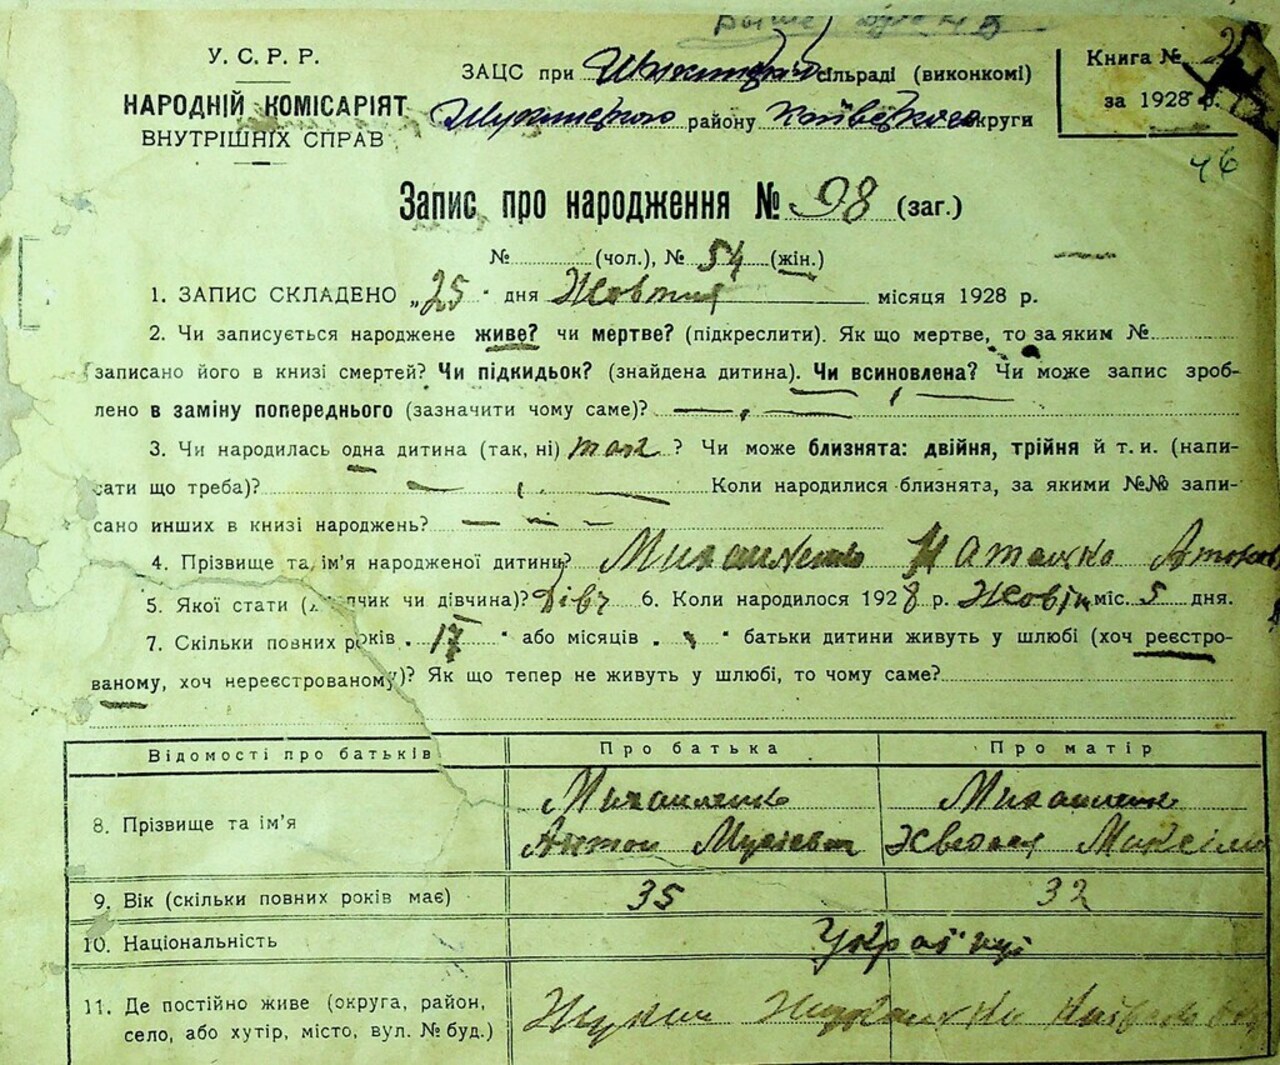 У. С. Р. Р.
НАРОДНІЙ КОМІСАРІЯТ
ВНУТРІШНІХ СПРАВ
ЗАЦС при сільраді (виконкомі)
району округи
Книга №
за 1928 р.
46
Запис про народження № 98 (заг.)
№ (чол.), № 54 (жін.)
1. ЗАПИС СКЛАДЕНО „25" дня Жовтня місяця 1928 р.
2. Чи записується народжене живе? чи мертве? (підкреслити). Як що мертве, то за яким №
записано його в книзі смертей? Чи підкидьок? (знайдена дитина). Чи всиновлена? Чи може запис зроб-
лено в заміну попереднього (зазначити чому саме)? — , —
3. Чи народилась одна дитина (так, ні) так ? Чи може близнята: двійня, трійня й т. и. (напи-
сати що треба)? Коли народилися близнята, за якими №№ запи-
сано инших в книзі народжень?
4. Прізвище та ім'я народженої дитини? Михайленко Наталка
5. Якої стати (хлопчик чи дівчина)? Дівч 6. Коли народилося 1928 р. Жовтн міс. 5 дня.
7. Скільки повних років „17" або місяців „ " батьки дитини живуть у шлюбі (хоч реєстро-
ваному, хоч нереєстрованому)? Як що тепер не живуть у шлюбі, то чому саме?
Відомості про батьків Про батька Про матір
8. Прізвище та ім'я Михайленко Антон Мусієвич Михайленко
9. Вік (скільки повних років має) 35 32
10. Національність Українці
11. Де постійно живе (округа, район,
село, або хутір, місто, вул. № буд.)